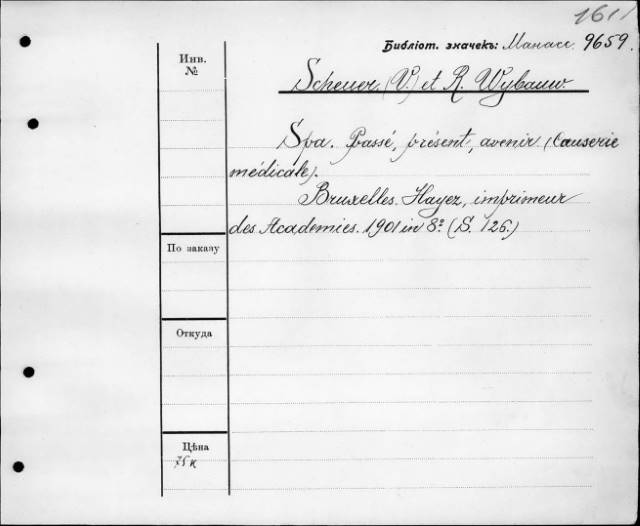 1611
Библіот. значекъ: Манасс. 9659.
Инв.
№
Scheuer (V.) et R. Wybauw.
Spa. Passé, présent, avenir (Causerie
médicale).
Bruxelles. Hayez, imprimeur
des Academies. 1901 in 8º (S. 126.)
По заказу
Откуда
Цѣна
75 к